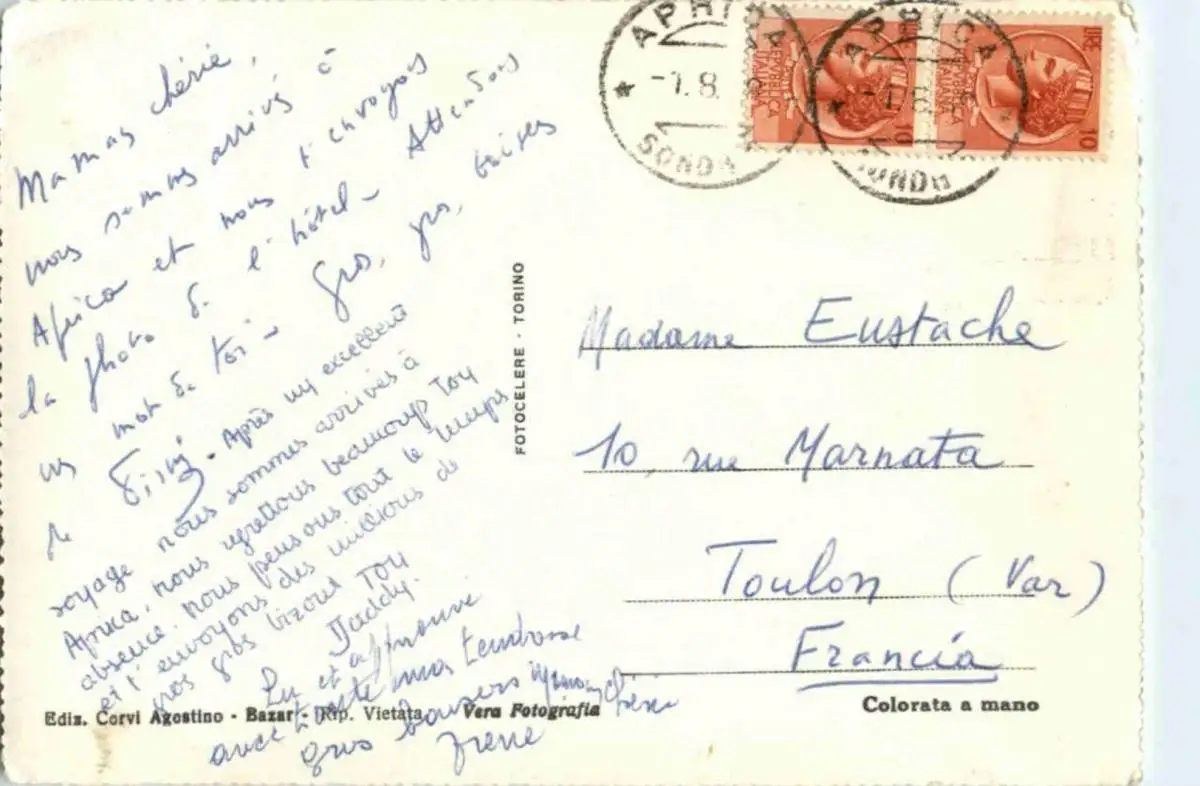 Maman chérie,
nous sommes arrivés à
Aprica et nous t'envoyons
la photo de l'hôtel - Attendons
un mot de toi - Gros, gros, baisers
de - Après un excellent
voyage nous sommes arrivés à
Aprica, nous regrettons beaucoup ton
absence. nous pensons tout le temps
et t'envoyons des millions de
nos gros bizous Ton
Daddy.
Lu et approuvé
avec toute ma tendresse
gros baisers chérie
Irene
APRICA
-1.8.
SONDR
APRICA
-1.8.
SONDR
LIRE
REPUBBLICA
ITALIANA
10
LIRE
REPUBBLICA
ITALIANA
10
FOTOCELERE · TORINO
Madame Eustache
10, rue Marnata
Toulon (Var)
Francia
Ediz. Corvi Agostino - Bazar - Rip. Vietata Vera Fotografia
Colorata a mano